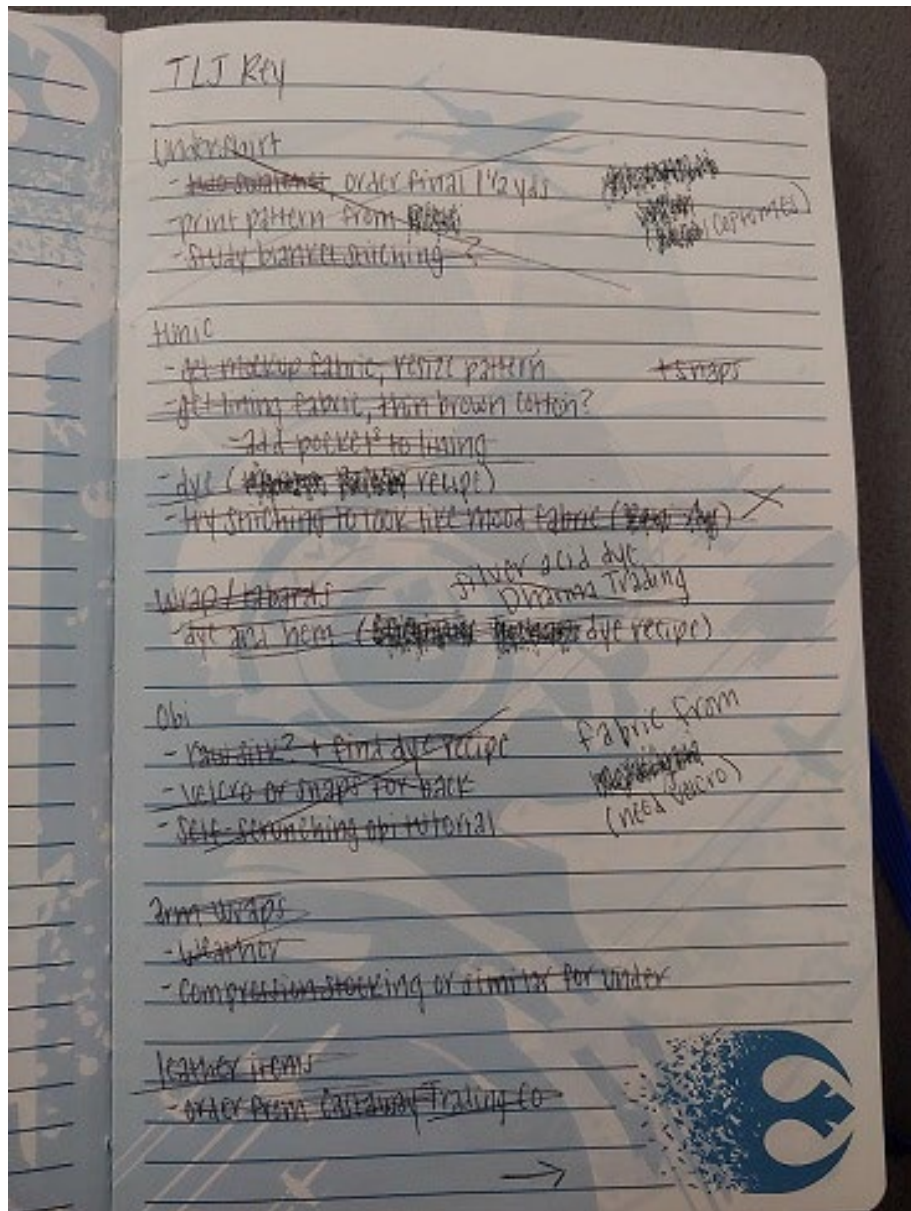 TLJ Rey
Undershirt
- two swatches, order final 1 1/2 yds
- print pattern from
- study blanket stitching ?
( costumes)
tunic
- get mockup fabric, resize pattern
+ snaps
- get lining fabric, thin brown cotton?
- add pockets to lining
- dye ( recipe)
- try stitching to look like mood fabric ( )
wrap / tabards
silver acid dye
Dharma Trading
- dye and hem ( dye recipe)
Obi
- raw silk? + find dye recipe
- velcro or snaps for back
- self-scrunching obi tutorial
fabric from
(need velcro)
arm wraps
- weather
- compression stocking or similar for under
leather items
- order from Castaway Trading Co
→